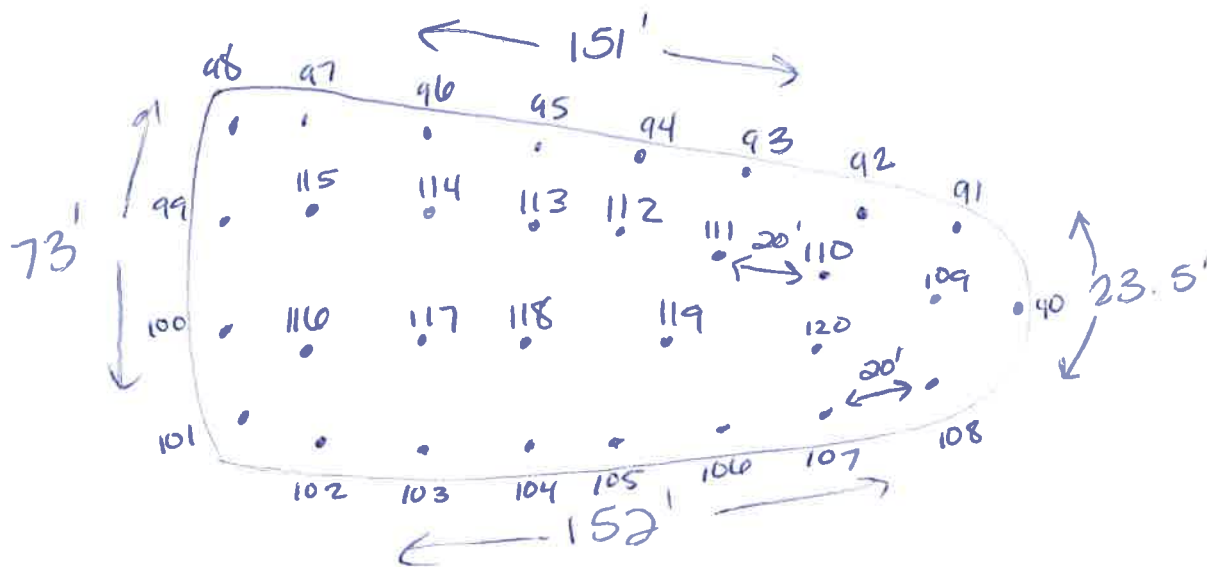 151'
98 97 96 95 94 93 92 91
99 115 114 113 112 111 20' 110
73'
109 90 23.5'
100 116 117 118 119 120
20'
101 102 103 104 105 106 107 108
152'